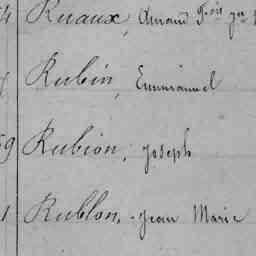 Ruaux, Amand
Rubin, Emmanuel
9 Rubion, Joseph
1 Rublon, Jean Marie